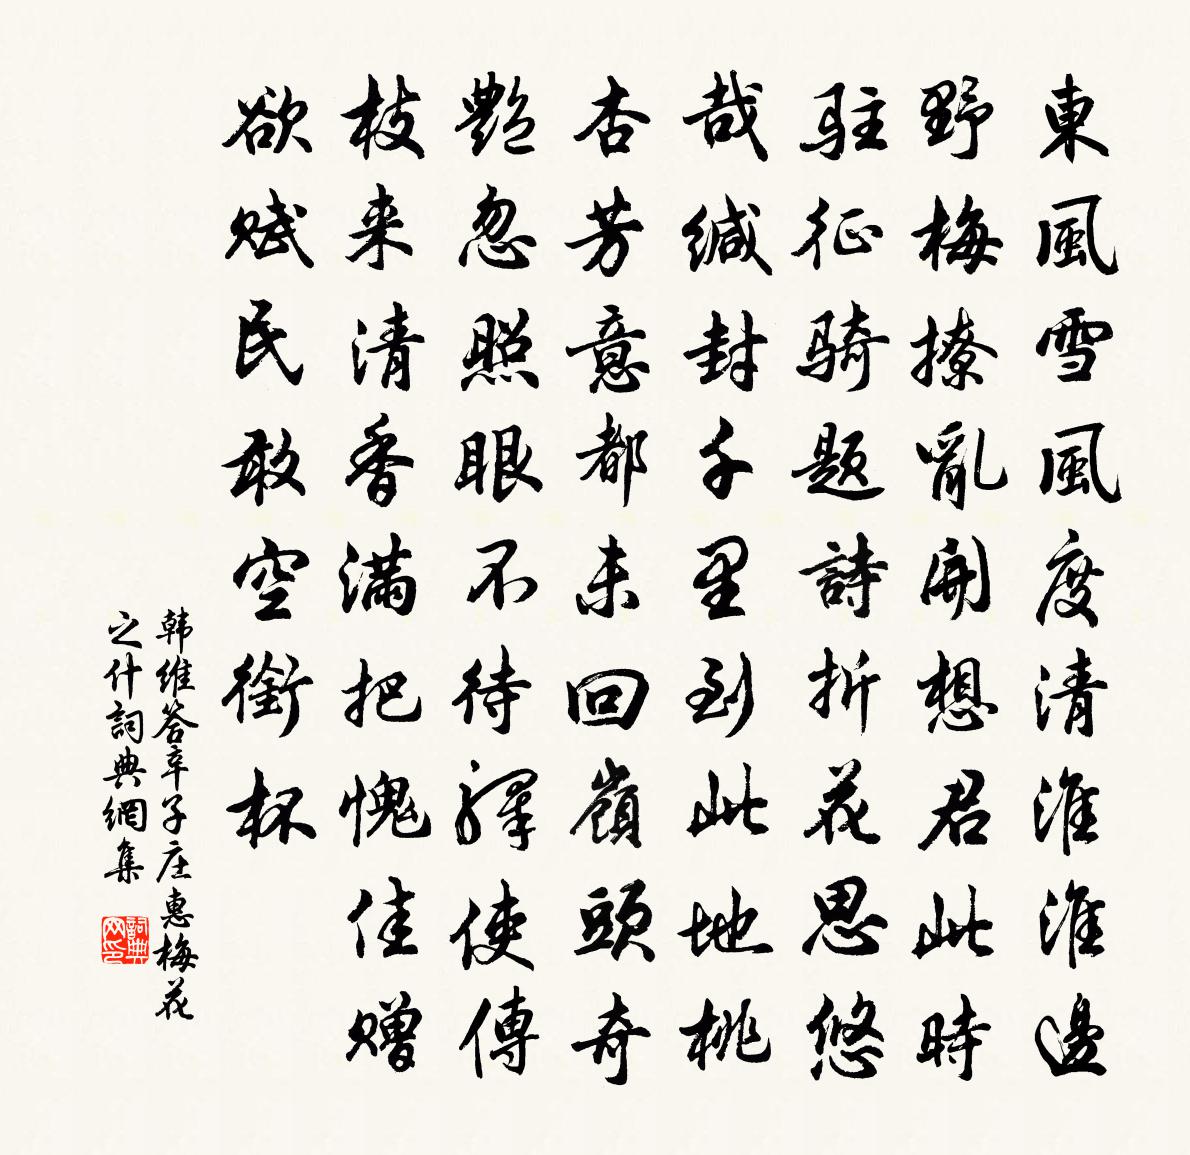 東風雪風度清淮淮邊
野梅撩亂開想君此時
驻征骑题詩折花思悠
哉缄封千里到此地桃
杏芳意都未回嶺頭奇
艷忽照眼不待驛使傳
枝来清香満把愧佳赠
欲赋民敢空銜杯
韩維答辛子庄惠梅花
之什詞典網集
詞典网印